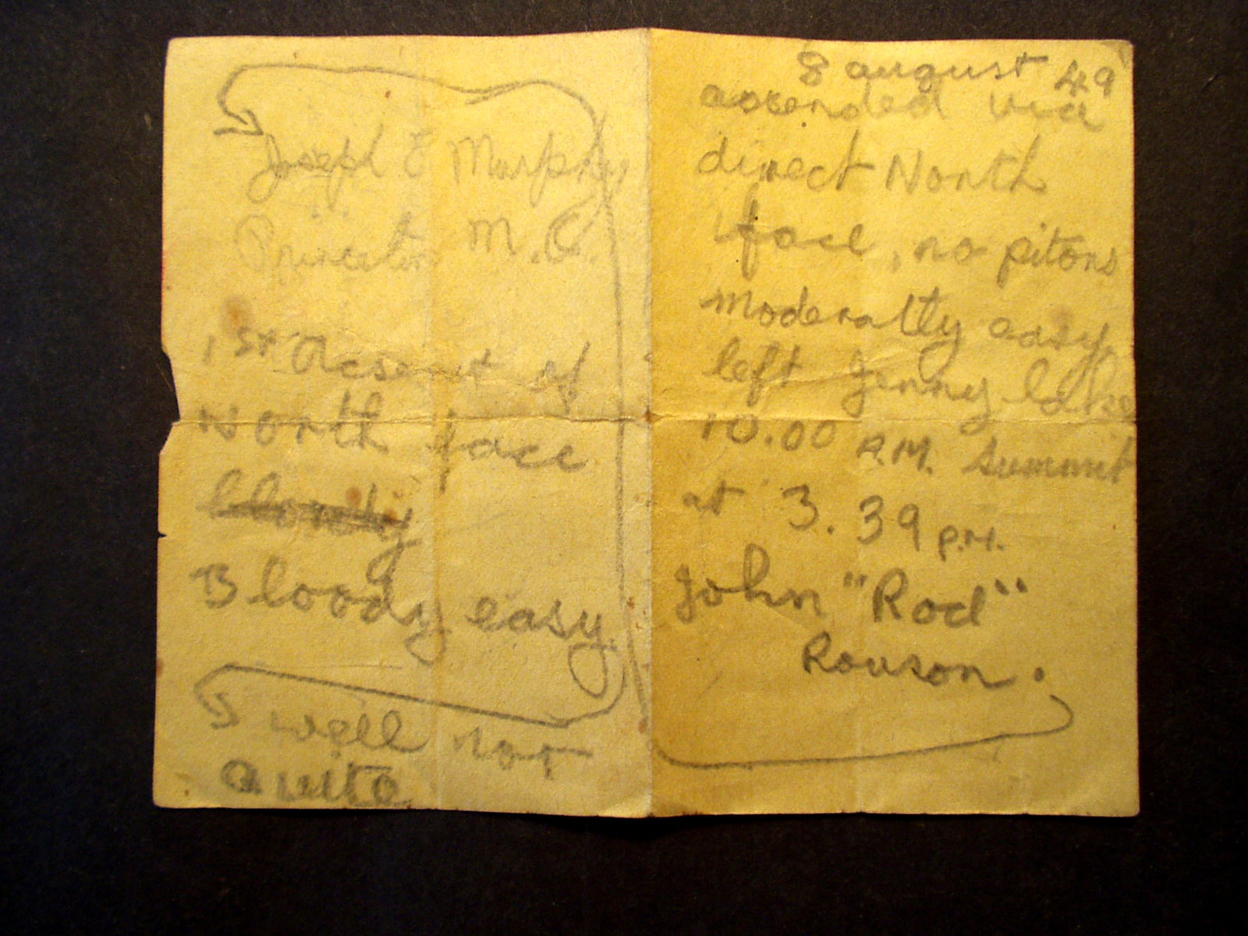 8 august 49
ascended via
direct North
face, no pitons
moderatly easy
left Jenny lake
10.00 A.M. Summit
at 3.39 P.M.
John "Rod"
Rouson.
Joseph E Murphy
Princeton M.C.
1st Acsent of
North face
bloody
Bloody easy
well not
quite